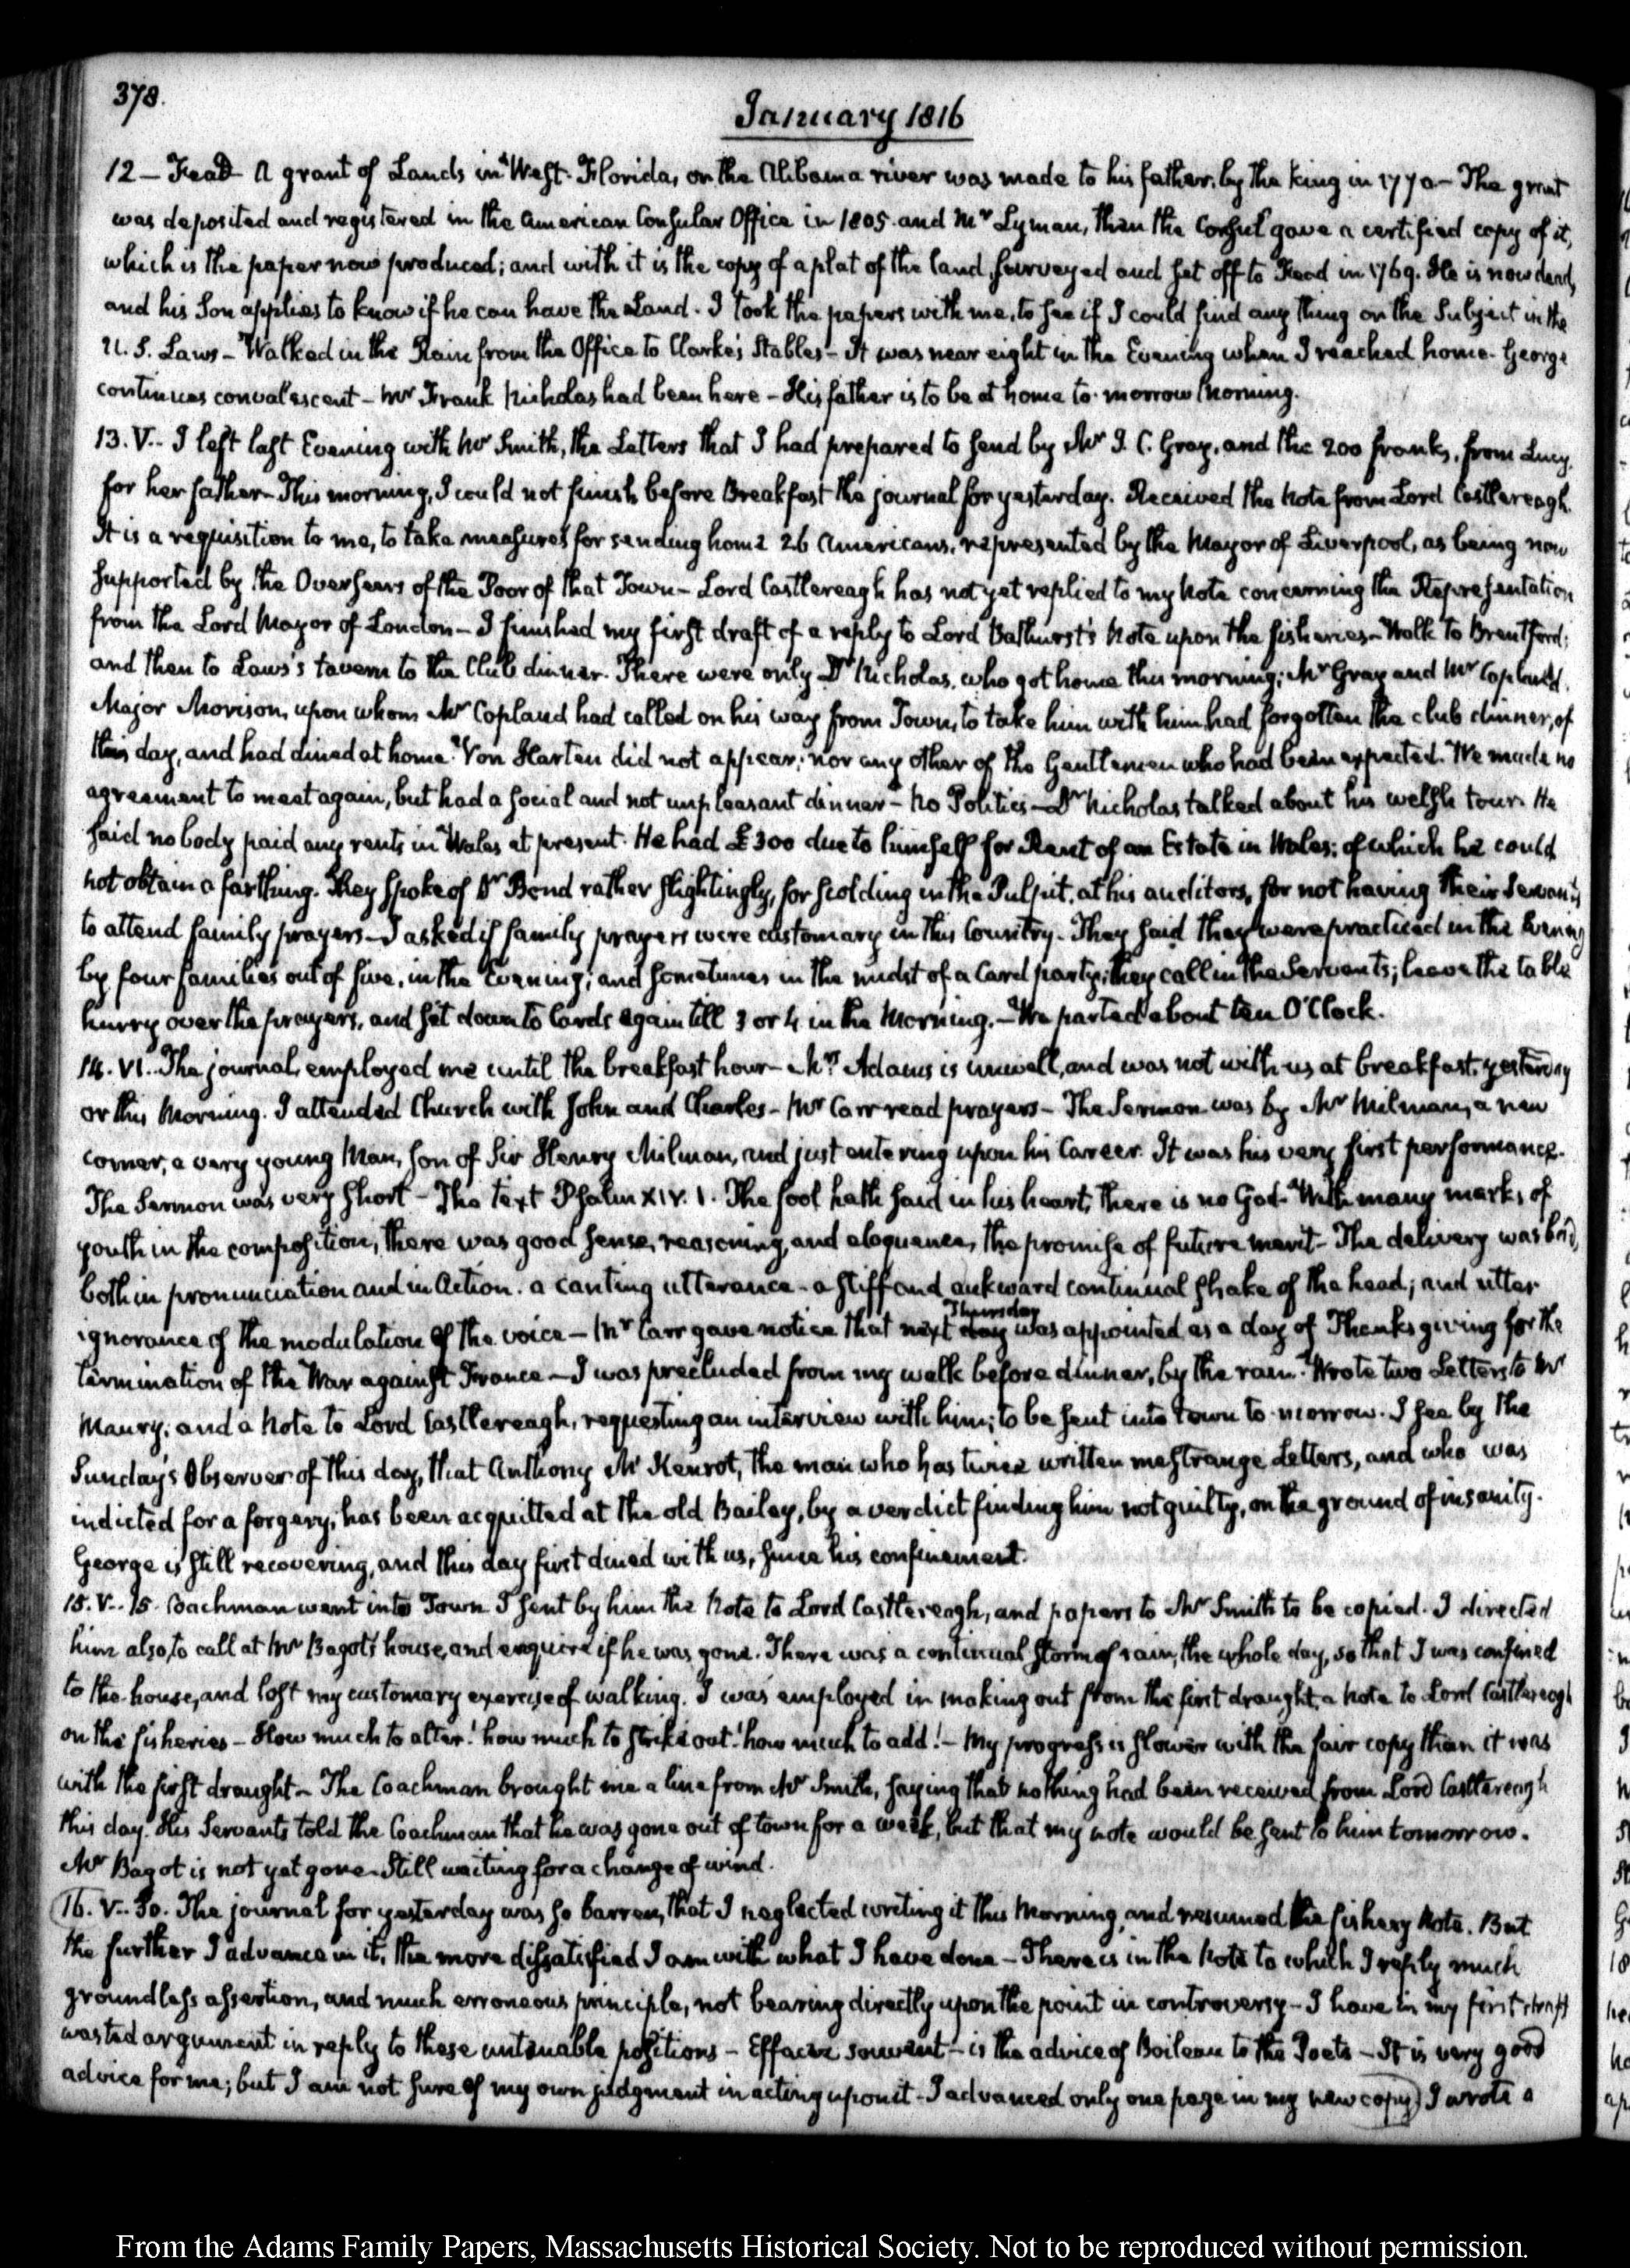 378.
January 1816
12 — Read A grant of Lands in West-Florida, on the Alibama river was made to his father, by the king in 1770 — The grant
was deposited and registered in the American Consular Office in 1805. and Mr Lyman, then the Consul gave a certified copy of it,
which is the paper now produced; and with it is the copy of a plat of the land, surveyed and set off to Read in 1769. He is now dead,
and his Son applies to know if he can have the Land. I took the papers with me, to see if I could find any thing on the Subject in the
U.S. Laws — Walked in the Rain from the Office to Clarke's Stables — It was near eight in the Evening when I reached home. George
continues convalescent — Mr Frank Nicholas had been here — His father is to be at home to-morrow Morning.
13. V.. I left last Evening with Mr Smith, the Letters that I had prepared to send by Mr J. C. Gray, and the 200 franks, from Lucy.
for her father — This morning, I could not finish before Breakfast the journal for yesterday. Received the Note from Lord Castlereagh.
It is a requisition to me, to take measures for sending home 26 Americans, represented by the Mayor of Liverpool, as being now
supported by the Overseers of the Poor of that Town — Lord Castlereagh has not yet replied to my Note concerning the Representation
from the Lord Mayor of London — I finished my first draft of a reply to Lord Bathurst's Note upon the fisheries — Walk to Brentford;
and then to Laws's tavern to the Club dinner. There were only Dr Nicholas, who got home this morning; Mr Gray and Mr Copland.
Major Morison, upon whom Mr Copland had called on his way from Town, to take him with him had forgotten the club dinner, of
this day, and had dined at home. Von Harten did not appear; nor any other of the Gentlemen who had been expected. We made no
agreement to meet again, but had a social and not unpleasant dinner — No Politics — Dr Nicholas talked about his welsh tour. He
said nobody paid any rents in Wales at present. He had £300 due to himself for Rent of an Estate in Wales; of which he could
not obtain a farthing. They spoke of Dr Bond rather slightingly, for scolding in the Pulpit, at his auditors, for not having their Servants
to attend family prayers — I asked if family prayers were customary in this Country. They said they were practiced in the Evening
by four families out of five, in the Evening; and sometimes in the midst of a Card party; they call in the Servants; leave the table
hurry over the prayers, and sit down to Cards again till 3 or 4 in the Morning. — We parted about ten O'Clock.
14. VI.. The journal, employed me until the breakfast hour — Mrs Adams is unwell, and was not with us at breakfast, yesterday
or this Morning. I attended Church with John and Charles — Mr Carr read prayers — The Sermon was by Mr Milman, a new
comer, a very young Man, son of Sir Henry Milman, and just entering upon his Career. It was his very first performance.
The Sermon was very short — The text Psalm XIV. 1. The fool hath said in his heart, there is no God. With many marks of
youth in the composition, there was good sense, reasoning, and eloquence, the promise of future merit — The delivery was bad,
both in pronunciation and in Action. a canting utterance — a stiff and aukward continual shake of the head; and utter
ignorance of the modulation of the voice — Mr Carr gave notice that next day Thursday was appointed as a day of Thanksgiving for the
termination of the War against France — I was precluded from my walk before dinner, by the rain. Wrote two Letters to Mr
Maury; and a Note to Lord Castlereagh, requesting an interview with him; to be sent into town to-morrow. I see by the
Sunday's Observer of this day, that Anthony Mc Kenrot, the man who has twice written me strange Letters, and who was
indicted for a forgery; has been acquitted at the old Bailey, by a verdict finding him not guilty, on the ground of insanity.
George is still recovering, and this day first dined with us, since his confinement.
15. V.. 15. Coachman went into Town I sent by him the Note to Lord Castlereagh, and papers to Mr Smith to be copied. I directed
him also, to call at Mr Bagot's house, and enquire if he was gone. There was a continual storm of rain, the whole day, so that I was confined
to the house, and lost my customary exercise of walking. I was employed in making out from the first draught a Note to Lord Castlereagh
on the fisheries — How much to alter! how much to strike out! how much to add! — My progress is slower with the fair copy than it was
with the first draught — The Coachman brought me a line from Mr Smith, saying that nothing had been received from Lord Castlereagh
this day. His Servants told the Coachman that he was gone out of town for a week, but that my note would be sent to him tomorrow.
Mr Bagot is not yet gone. Still waiting for a change of wind.
16. V.. 30. The journal for yesterday was so barren, that I neglected writing it this Morning, and resumed the fishery Note. But
the further I advance in it, the more dissatisfied I am with what I have done — There is in the Note to which I reply much
groundless assertion, and much erroneous principle, not bearing directly upon the point in controversy — I have in my first draft
wasted argument in reply to these untenable positions — Effacez souvent — is the advice of Boileau to the Poets — It is very good
advice for me; but I am not sure of my own judgment in acting upon it — I advanced only one page in my new copy) I wrote a
From the Adams Family Papers, Massachusetts Historical Society. Not to be reproduced without permission.